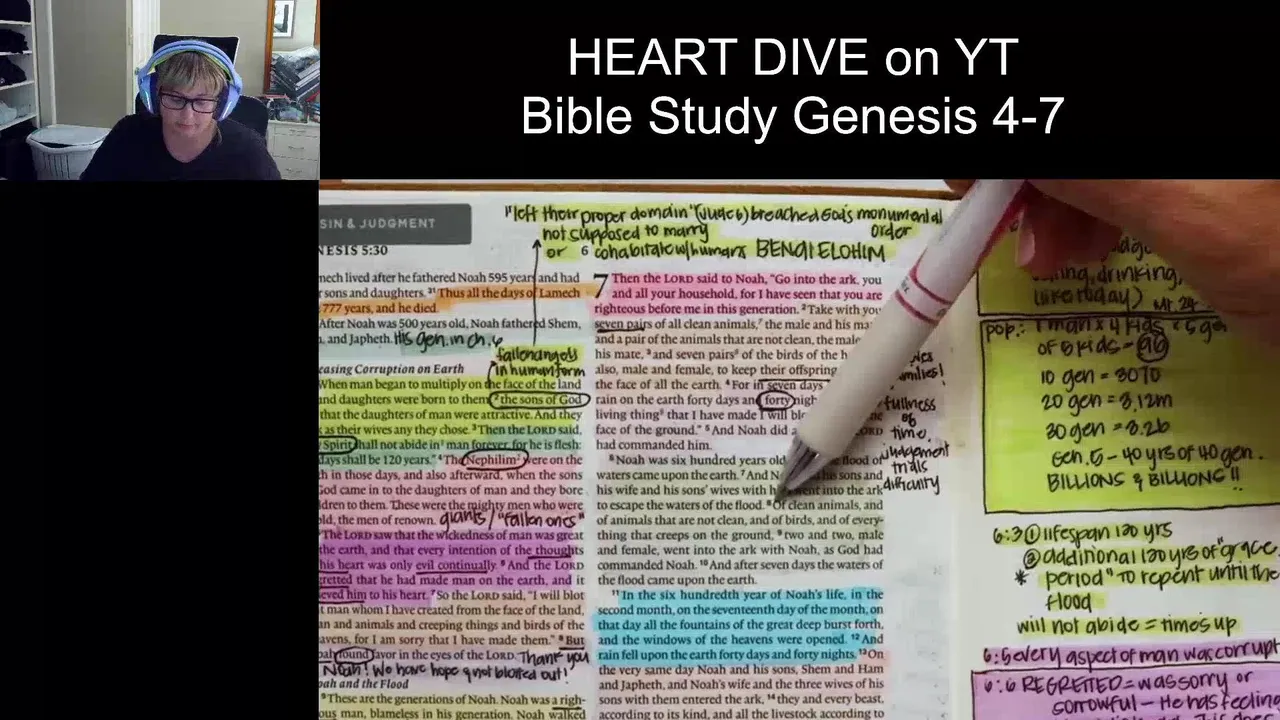 HEART DIVE on YT
Bible Study Genesis 4-7
SIN & JUDGMENT
"left their proper domain" (Jude 6) breached God's monumental
not supposed to marry order
or 6 cohabitate w/humans BENAI ELOHIM
NESIS 5:30
mech lived after he fathered Noah 595 years and had
sons and daughters. 31 Thus all the days of Lamech
777 years, and he died.
After Noah was 500 years old, Noah fathered Shem,
, and Japheth. His gen. in ch. 6
fallen angels
in human form
easing Corruption on Earth
When man began to multiply on the face of the land
and daughters were born to them, 2 the sons of God
that the daughters of man were attractive. And they
as their wives any they chose. 3 Then the LORD said,
Spirit shall not abide in man forever, for he is flesh:
days shall be 120 years." 4 The Nephilim were on the
h in those days, and also afterward, when the sons
God came in to the daughters of man and they bore
dren to them. These were the mighty men who were
old, the men of renown. giants / "fallen ones"
The LORD saw that the wickedness of man was great
the earth, and that every intention of the thoughts
his heart was only evil continually. 6 And the LORD
gretted that he had made man on the earth, and it
eved him to his heart. 7 So the LORD said, "I will blot
t man whom I have created from the face of the land,
an and animals and creeping things and birds of the
avens, for I am sorry that I have made them." 8 But
oah found favor in the eyes of the LORD. Thank you
Noah! We have hope & not blotted out!
oah and the Flood
9 These are the generations of Noah. Noah was a righ-
ous man, blameless in his generation. Noah walked
7 Then the LORD said to Noah, "Go into the ark, you
and all your household, for I have seen that you are
righteous before me in this generation. 2 Take with you
seven pairs of all clean animals, the male and his ma
and a pair of the animals that are not clean, the male
his mate, 3 and seven pairs of the birds of the h
also, male and female, to keep their offspring
the face of all the earth. 4 For in seven days
rain on the earth forty days and forty nigh
living thing that I have made I will blo
face of the ground." 5 And Noah did a LORD
had commanded him.
6 Noah was six hundred years old flood of
waters came upon the earth. 7 And N his sons and
his wife and his sons' wives with h went into the ark
to escape the waters of the flood. 8 Of clean animals, and
of animals that are not clean, and of birds, and of every-
thing that creeps on the ground, 9 two and two, male
and female, went into the ark with Noah, as God had
commanded Noah. 10 And after seven days the waters of
the flood came upon the earth.
11 In the six hundredth year of Noah's life, in the
second month, on the seventeenth day of the month, on
that day all the fountains of the great deep burst forth,
and the windows of the heavens were opened. 12 And
rain fell upon the earth forty days and forty nights. 13 On
the very same day Noah and his sons, Shem and Ham
and Japheth, and Noah's wife and the three wives of his
sons with them entered the ark, 14 they and every beast,
according to its kind, and all the livestock according to
fullness
of
time,
judgement
trials
difficulty
drinking,
(like today) Mt. 24
pop.: 1 man x 4 kids
of 5 kids = 96
10 gen = 3070
20 gen = 3.12m
30 gen = 3.2b
Gen. 5 - 40 yrs of 40 gen.
BILLIONS & BILLIONS!!
6:3 ① lifespan 120 yrs
② additional 120 yrs of "grace
* period" to repent until the
flood
will not abide = times up
6:5 every aspect of man was corrupt
6:6 REGRETTED = was sorry or
sorrowful - He has feeling